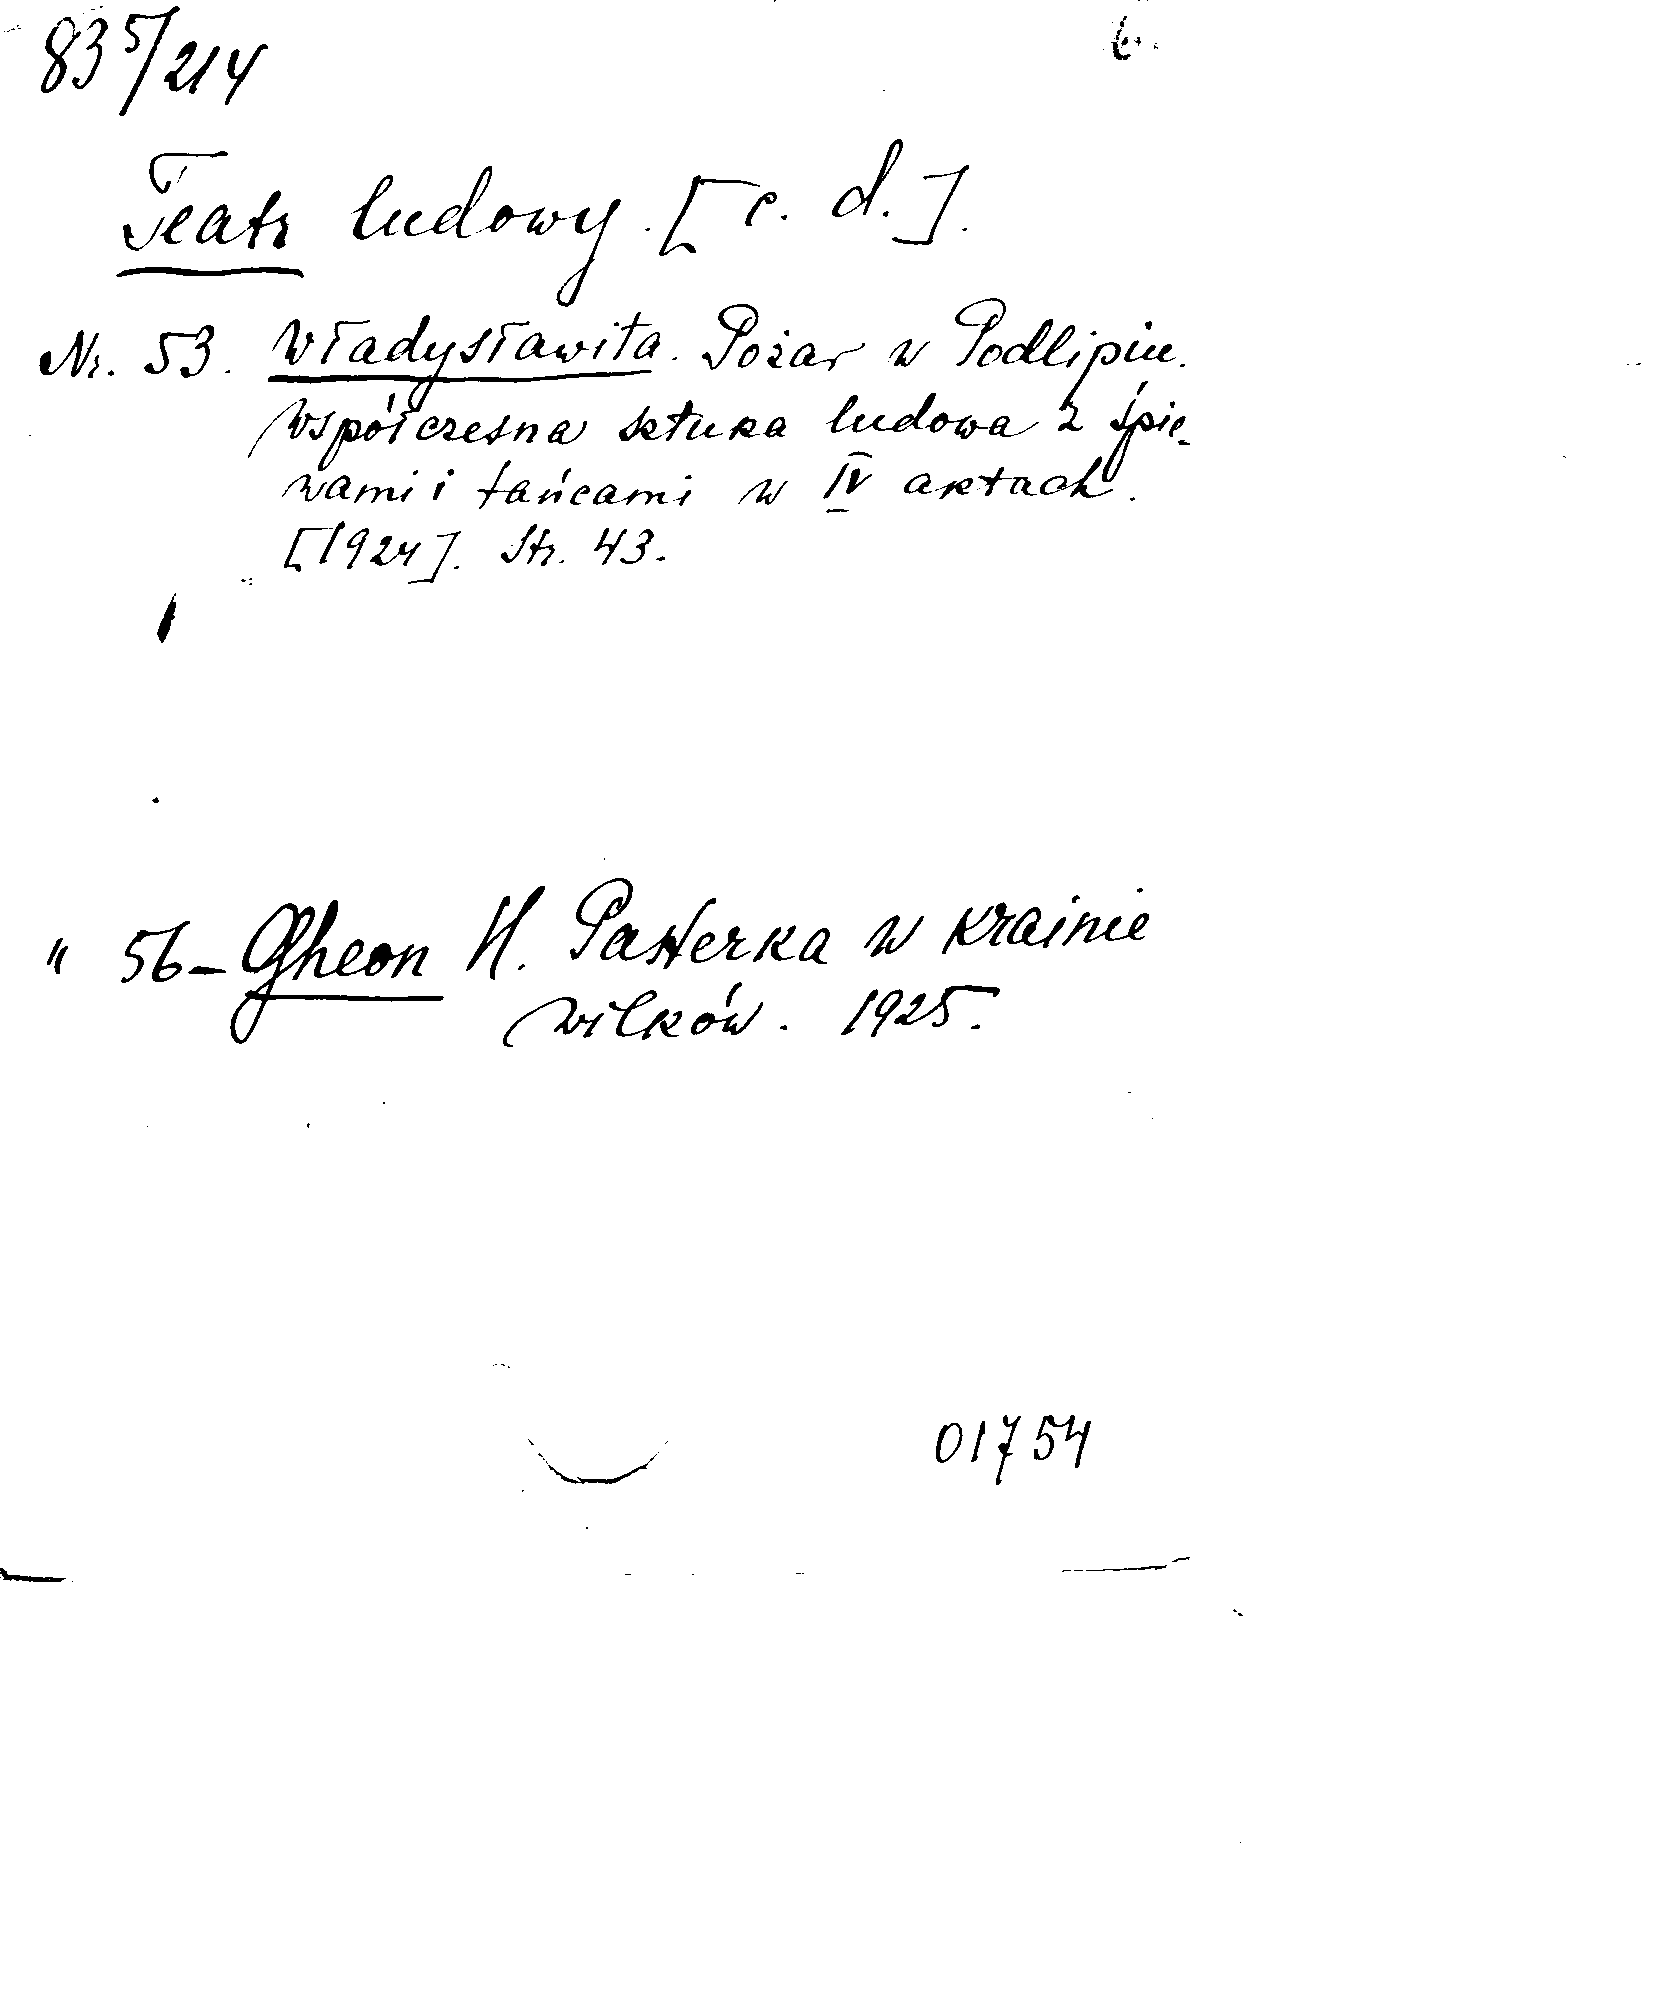 83 5/214
6.
Teatr ludowy. [c. d.].
Nr. 53. Władysławita. Pożar w Podlipiu.
Współczesna sztuka ludowa z śpie-
wami i tańcami w IV aktach.
[1924]. Str. 43.
" 56 - Gheon H. Pasterka w krainie
wilków. 1925.
01754